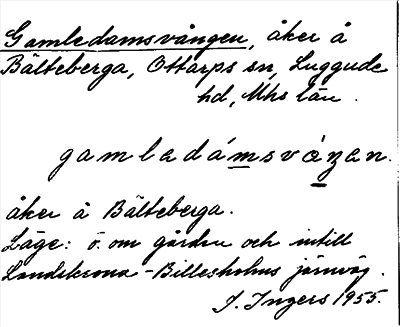 Gamledamsvången, åker å
Bälteberga, Ottarps sn, Luggude
hd, Mhs län.
gamladámsvàŋan.
åker å Bälteberga.
Läge: ö. om gården och intill
Landskrona-Billesholms järnväg.
I. Ingers 1955.